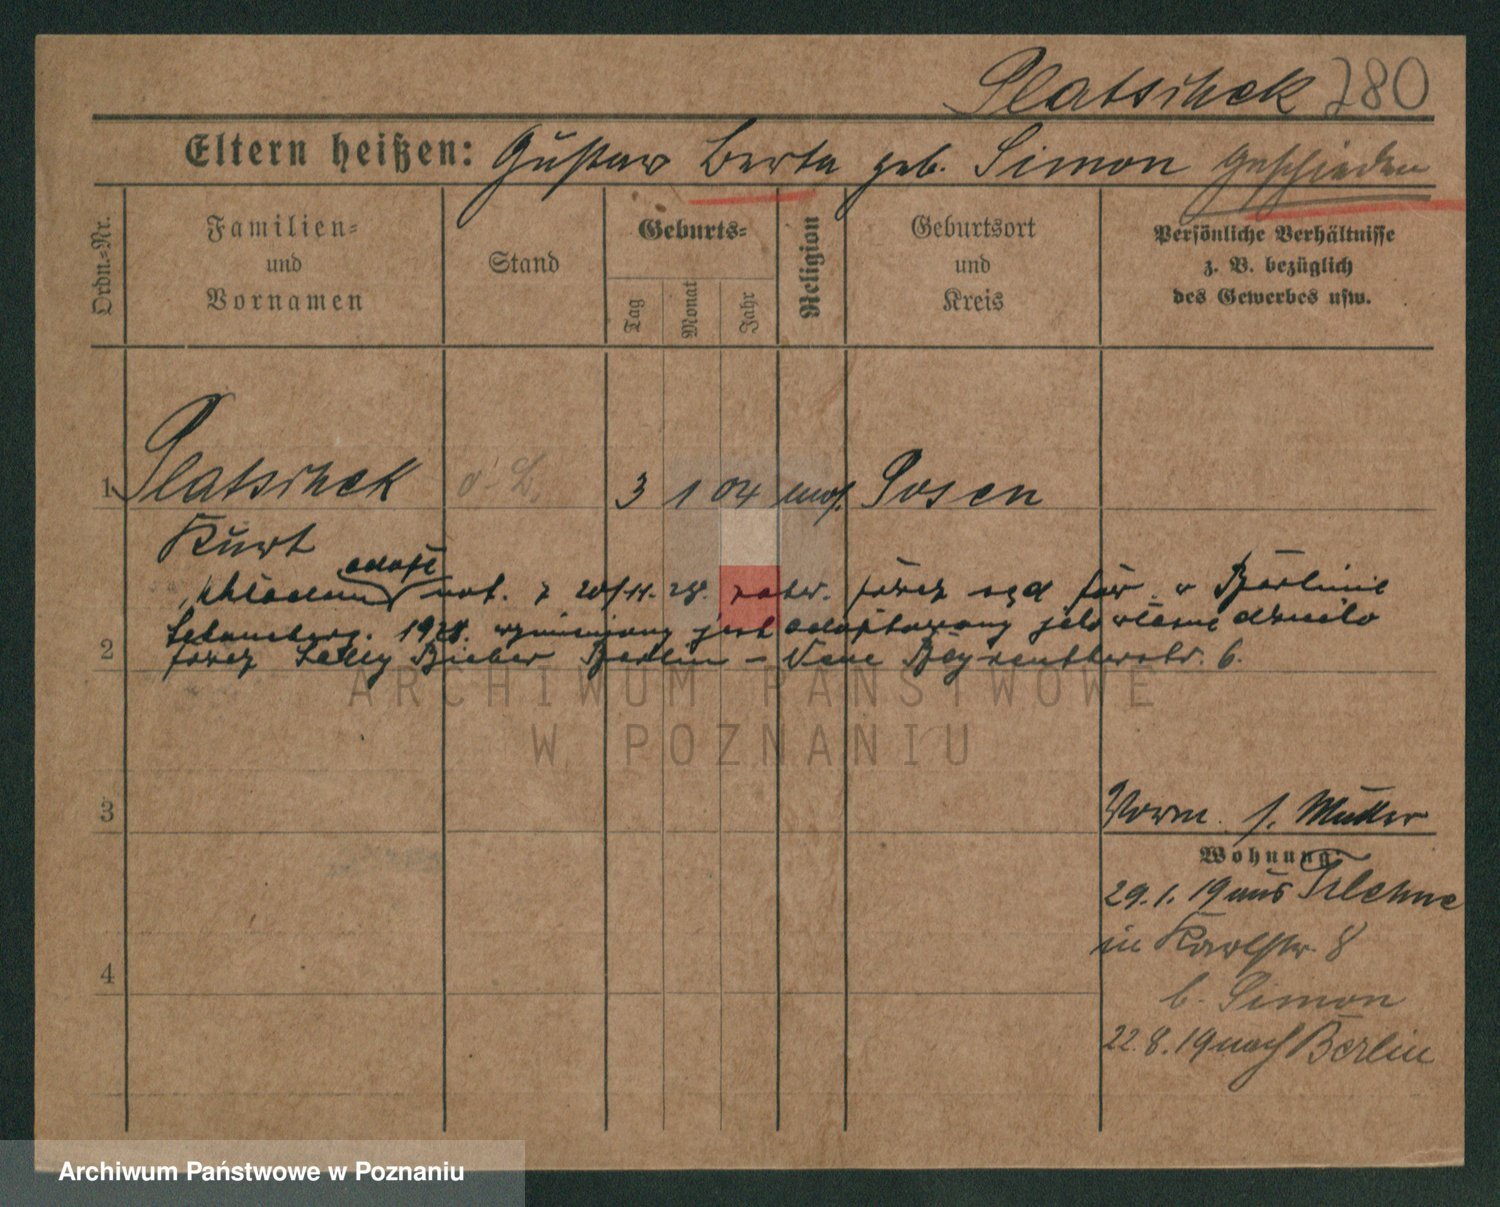 Platschek 780
Eltern heißen: Gustav Berta geb. Simon geschieden
Ordn.=Nr.
Familien=
und
Vornamen
Stand
Geburts=
Tag
Monat
Jahr
Religion
Geburtsort
und
Kreis
Persönliche Verhältnisse
z. B. bezüglich
des Gewerbes usw.
1 Platschek 3 1 04 mos. Posen
Kurt
adopt
układem not. z 20/11. 28. zatw. przez sąd pow. w Berlinie
Schöneberg. 1928. wymieniony jest adoptowany jako własne dziecko
2 przez Selly Bieber Berlin – Neue Bayreutherstr. 6.
ARCHIWUM PAŃSTWOWE
W POZNANIU
3
Vorm. s. Mutter
Wohnung:
29.1.19 aus Filehne
in Karlstr. 8
4
b. Simon
22.8.19 nach Berlin
Archiwum Państwowe w Poznaniu